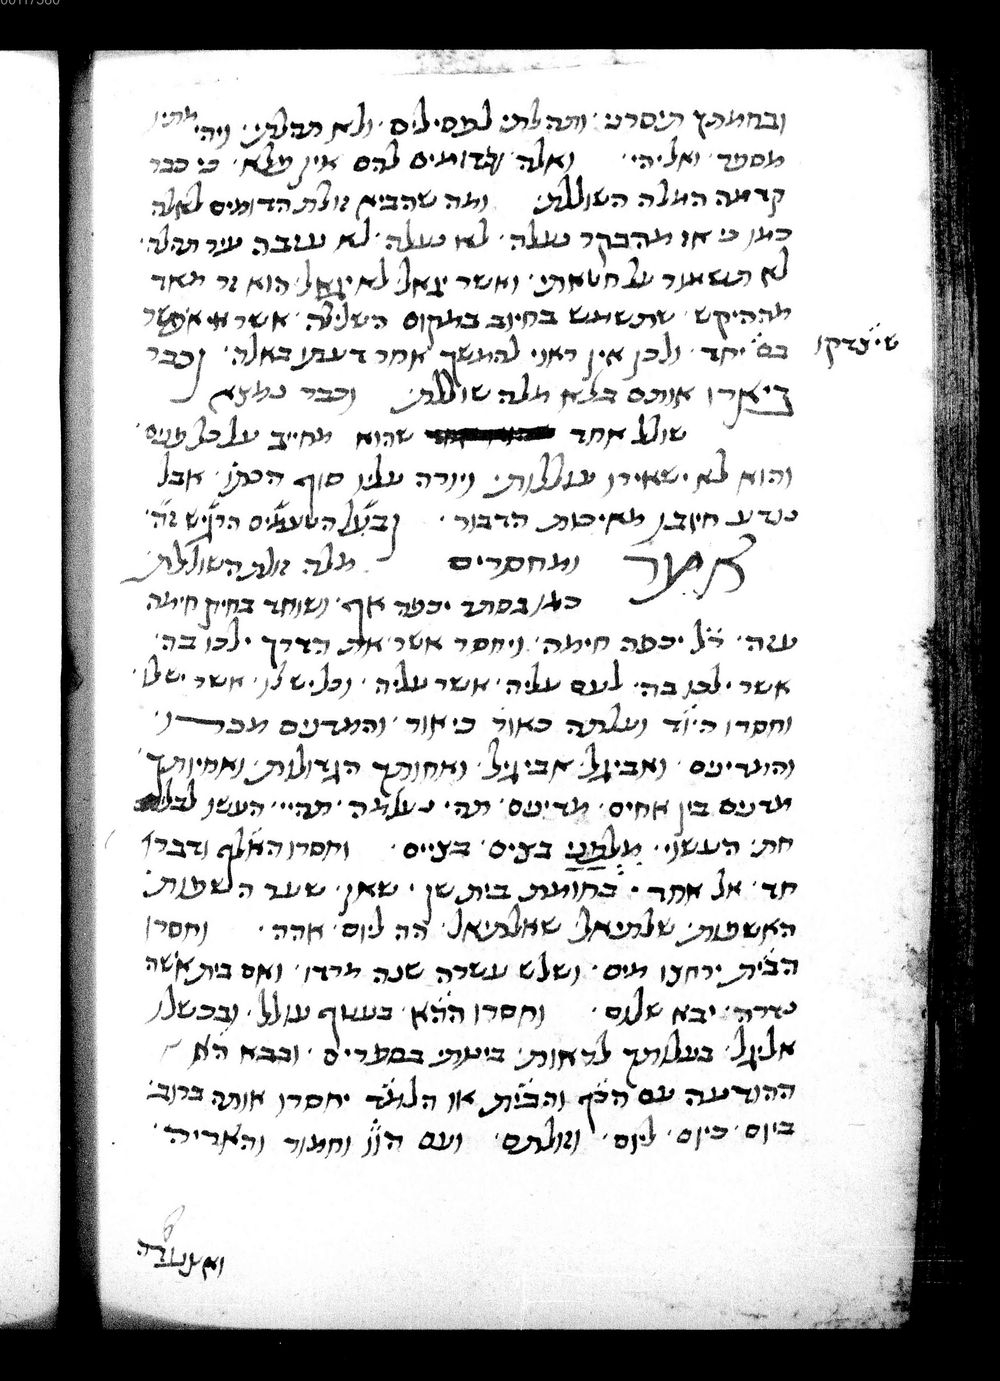 ובחמתך תיסרני · ותהלתי לפסילים · ולא תהלתי · ויהי מתיו
מספר · ואל יהי · ואלה ודומים להם אין מלא · כי כבר
קדמה המלה השוללת · ומה שהביא זולת הדומים לאלה
כמו כי או מהבקר נעלה · לא נעלה · לא עזבה עיר תהלה ·
לא תשמור על חטאתי · ואשר יגאל לא יגאל הוא זר מאד
מההיקש · שתשמש בחיוב במקום השלילה · אשר אי אפשר
בם יחד · ולכן אין ראוי להמשך אחר דעתו באלה · וכבר
ביארו אותם בלא מלה שוללת · וכבר נמצא
שולל אחד שהוא מחייב על כל פנים ·
והוא לא ישאירו עוללות · ויורה עליו סוף הכתו · אבל
נודע חיובו מאיכות הדבור · ובעל הטעמים הרגיש זה ·
אמר ומחסרים מלה זולת השוללת ·
כמו בסתר יכפה אף · ושוחד בחיק חימה
עזה · ר״ל יכפה חימה · ויחסר אשר את הדרך ילכו בה ·
אשר ילכו בה · לעם עליה · אשר עליה · וכל יש לו · אשר יש לו ·
וחסרו היו״ד ועלתה כאור כיאור · והמדנים מכרו ·
והמדינים · ואביגל אביגיל · ואחותך הגדולות · ואחיותך
מדנים בין אחים · מדינים · תהי נעלמה · תהיי · העשו לבלי
חת · העשוי · מלפני בצים · בציים · וחסרו האלף ודברו
חד · אל אחד · בחומת בית שן · שאן · שער השפות ·
האשפות · שלתיאל שאלתיאל · הה ליום · אהה · וחסרו
הבית ירחצו מים · ושלש עשרה שנה מרדו · ואם בית אשה
נדרה · יבא שלום · וחסרו ההא · בעטף עולל · ובכשלו
אל יגל · בעלותך לראות · ביתתי במצרים · ובבא הא
ההודעה עם הכף והבית או הלמד יחסרו אותה ברוב ·
ביום · כיום · ליום · וזולתם · ועם הוו וחמור והאריה ·
ש״י צדקו